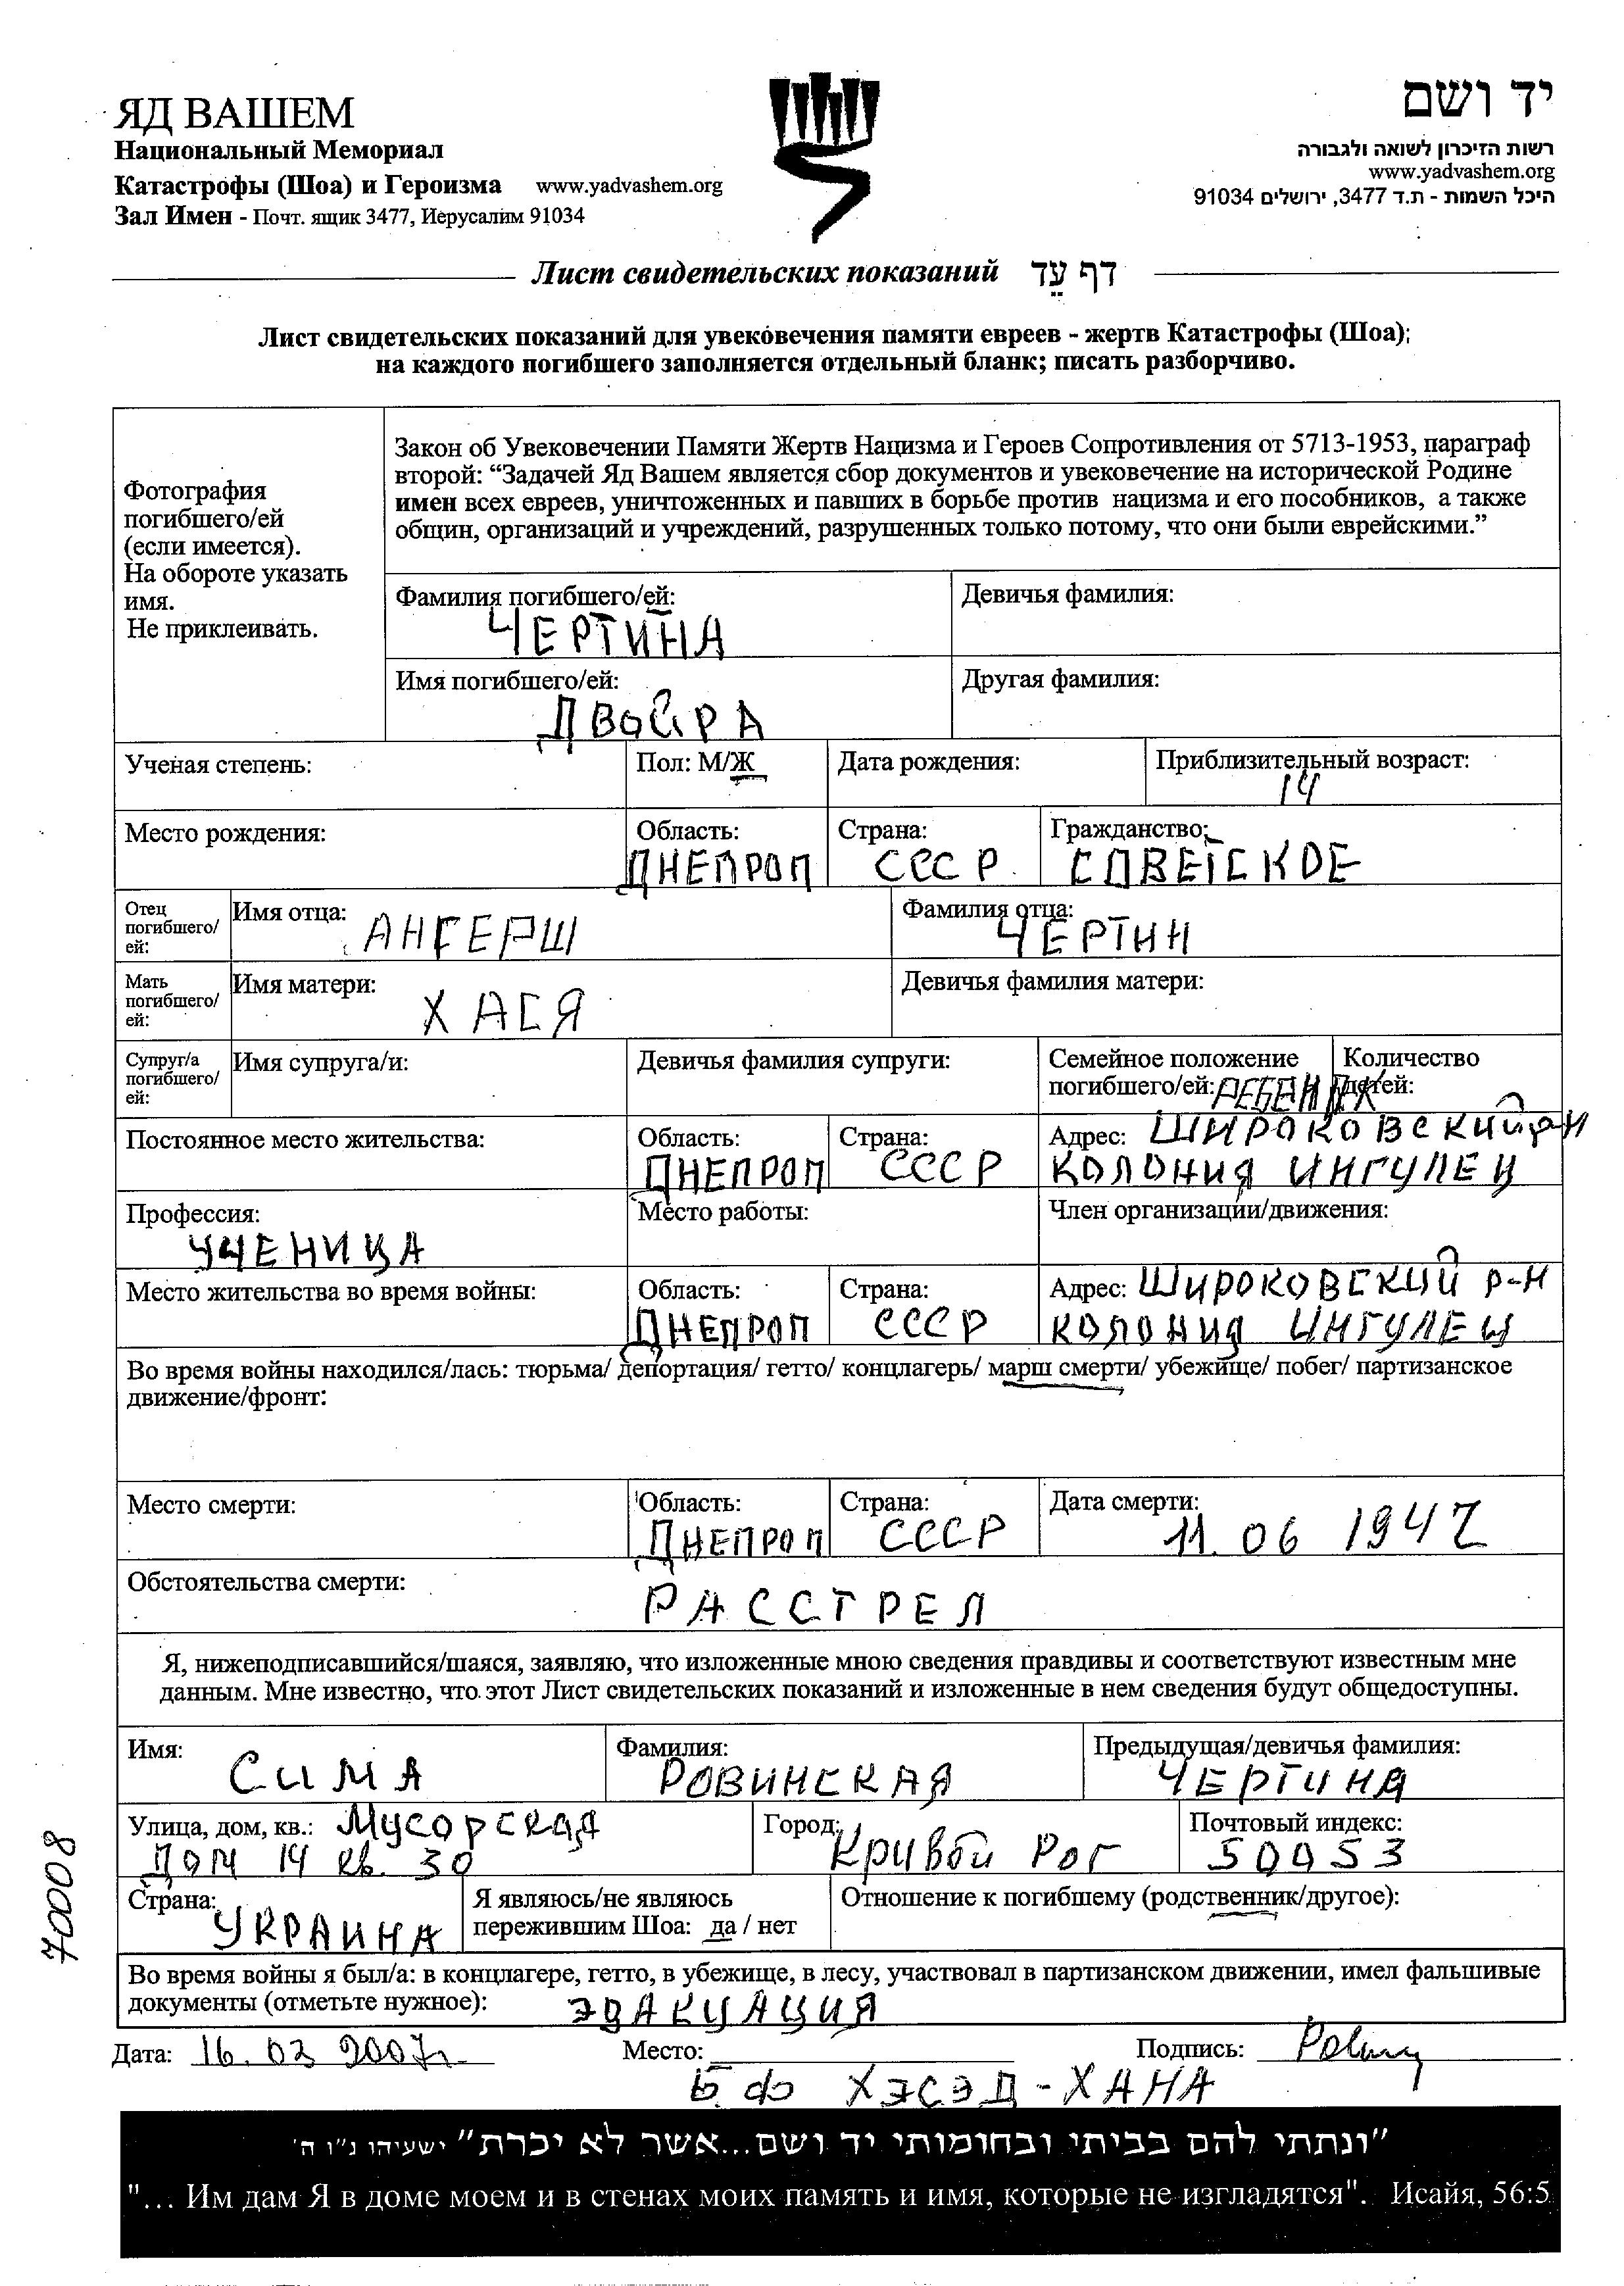 ЯД ВАШЕМ
Национальный Мемориал
Катастрофы (Шоа) и Героизма www.yadvashem.org
Зал Имен - Почт. ящик 3477, Иерусалим 91034
יד ושם
רשות הזיכרון לשואה ולגבורה
www.yadvashem.org
היכל השמות - ת.ד 3477, ירושלים 91034
Лист свидетельских показаний דף עֵד
Лист свидетельских показаний для увековечения памяти евреев - жертв Катастрофы (Шоа);
на каждого погибшего заполняется отдельный бланк; писать разборчиво.
Фотография
погибшего/ей
(если имеется).
На обороте указать
имя.
Не приклеивать.
Закон об Увековечении Памяти Жертв Нацизма и Героев Сопротивления от 5713-1953, параграф
второй: “Задачей Яд Вашем является сбор документов и увековечение на исторической Родине
имен всех евреев, уничтоженных и павших в борьбе против нацизма и его пособников, а также
общин, организаций и учреждений, разрушенных только потому, что они были еврейскими.”
Фамилия погибшего/ей: Девичья фамилия:
ЧЕРТИНА
Имя погибшего/ей: Другая фамилия:
ДВОЙРА
Ученая степень: Пол: М/Ж Дата рождения: Приблизительный возраст:
14
Место рождения: Область: Страна: Гражданство:
ДНЕПРОП СССР СОВЕТСКОЕ
Отец
погибшего/
ей:
Имя отца: АНГЕРШ Фамилия отца: ЧЕРТИН
Мать
погибшего/
ей:
Имя матери: ХАСЯ Девичья фамилия матери:
Супруг/а
погибшего/
ей:
Имя супруга/и: Девичья фамилия супруги: Семейное положение
погибшего/ей: РЕБЕНОК
Количество
детей:
Постоянное место жительства: Область: Страна: Адрес: ШИРОКОВСКИЙ Р-Н
ДНЕПРОП СССР КОЛОНИЯ ИНГУЛЕЦ
Профессия: Место работы: Член организации/движения:
УЧЕНИЦА
Место жительства во время войны: Область: Страна: Адрес: ШИРОКОВСКИЙ Р-Н
ДНЕПРОП СССР КОЛОНИЯ ИНГУЛЕЦ
Во время войны находился/лась: тюрьма/ депортация/ гетто/ концлагерь/ марш смерти/ убежище/ побег/ партизанское
движение/фронт:
Место смерти: Область: Страна: Дата смерти:
ДНЕПРОП СССР 11.06 1942
Обстоятельства смерти:
РАССТРЕЛ
Я, нижеподписавшийся/шаяся, заявляю, что изложенные мною сведения правдивы и соответствуют известным мне
данным. Мне известно, что этот Лист свидетельских показаний и изложенные в нем сведения будут общедоступны.
Имя: Фамилия: Предыдущая/девичья фамилия:
СИМА РОВИНСКАЯ ЧЕРТИНА
Улица, дом, кв.: Мусорская Город: Почтовый индекс:
ДОМ 14 кв. 30 Кривой Рог 50053
Страна: Я являюсь/не являюсь Отношение к погибшему (родственник/другое):
УКРАИНА пережившим Шоа: да / нет
Во время войны я был/а: в концлагере, гетто, в убежище, в лесу, участвовал в партизанском движении, имел фальшивые
документы (отметьте нужное): ЭВАКУАЦИЯ
Дата: 16.03 2007г. Место: Подпись:
БФ ХЭСЭД-ХАНА
70008
"ונתתי להם בביתי ובחומותי יד ושם...אשר לא יכרת" ישעיהו נ"ו ה'
"... Им дам Я в доме моем и в стенах моих память и имя, которые не изгладятся". Исайя, 56:5